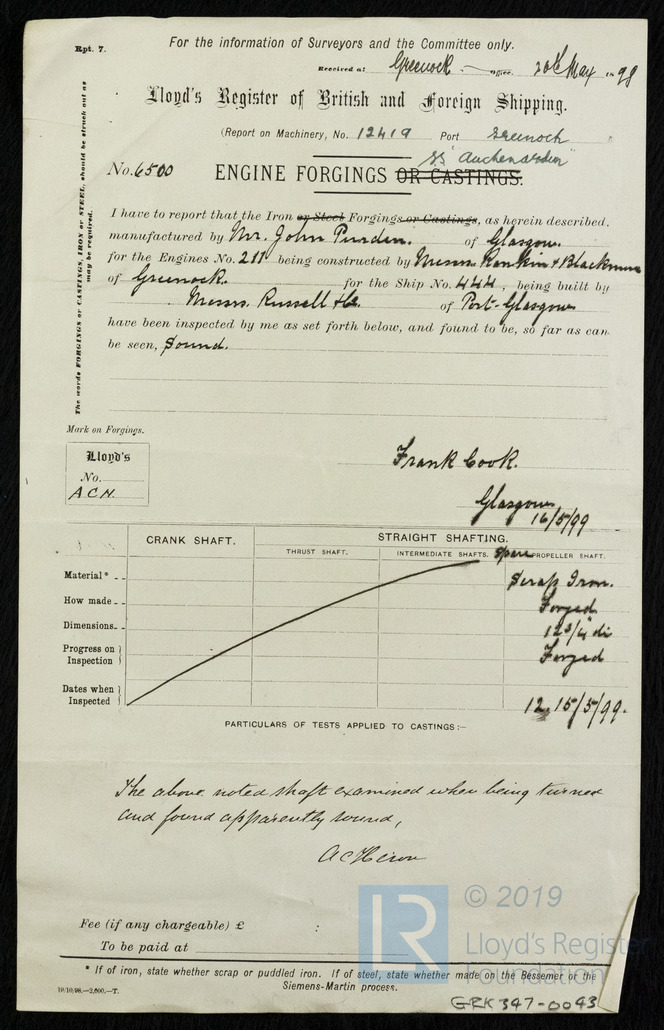 Rpt. 7.
For the information of Surveyors and the Committee only.
Received at Greenock Office. 20th May 1899
Lloyd's Register of British and Foreign Shipping.
(Report on Machinery, No. 12419 Port Greenock
SS "Auchenarden"
No. 6500 ENGINE FORGINGS OR CASTINGS.
The words FORGINGS or CASTINGS, IRON or STEEL, should be struck out as may be required.
I have to report that the Iron or Steel Forgings or Castings, as herein described,
manufactured by Mr. John Purden. of Glasgow.
for the Engines No. 211 being constructed by Messrs. Rankin & Blackmore
of Greenock. for the Ship No. 444, being built by
Messrs. Russell & Co. of Port-Glasgow
have been inspected by me as set forth below, and found to be, so far as can
be seen, Sound.
Mark on Forgings.
Lloyd's
No.
A.C.H.
Frank Cook.
Glasgow
16/5/99
CRANK SHAFT. STRAIGHT SHAFTING.
THRUST SHAFT. INTERMEDIATE SHAFTS. Spare PROPELLER SHAFT.
Material* Scrap Iron.
How made Forged
Dimensions 12 3/4" di
Progress on Inspection Forged
Dates when Inspected 12. 15/5/99.
PARTICULARS OF TESTS APPLIED TO CASTINGS:–
The above noted shaft examined when being turned
and found apparently sound,
A C Heron
Fee (if any chargeable) £ :
To be paid at
* If of iron, state whether scrap or puddled iron. If of steel, state whether made on the Bessemer or the
Siemens-Martin process.
19/10/98.—2,000.—T.
LR
© 2019
Lloyd's Register
Foundation
GRK347-0043